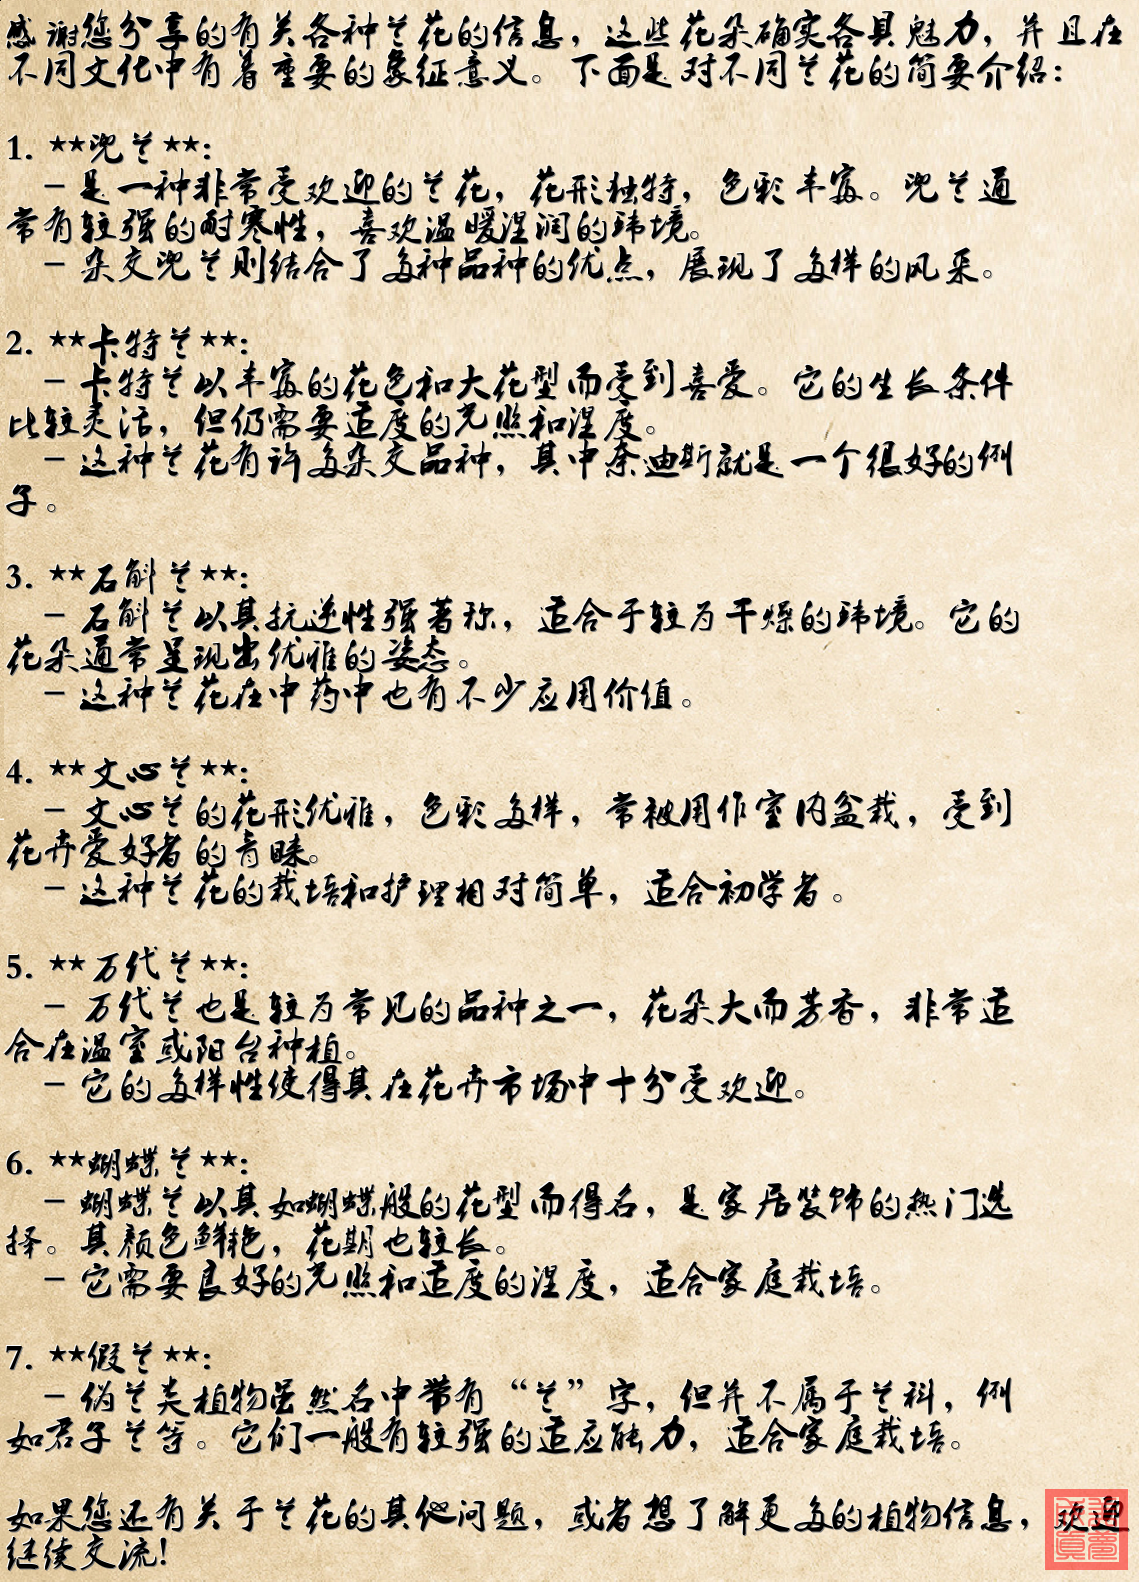 感谢您分享的有关各种兰花的信息，这些花朵确实各具魅力，并且在
不同文化中有着重要的象征意义。下面是对不同兰花的简要介绍：
1. **兜兰**:
- 是一种非常受欢迎的兰花，花形独特，色彩丰富。兜兰通
常有较强的耐寒性，喜欢温暖湿润的环境。
- 杂交兜兰则结合了多种品种的优点，展现了多样的风采。
2. **卡特兰**:
- 卡特兰以丰富的花色和大花型而受到喜爱。它的生长条件
比较灵活，但仍需要适度的光照和湿度。
- 这种兰花有许多杂交品种，其中奈迪斯就是一个很好的例
子。
3. **石斛兰**:
- 石斛兰以其抗逆性强著称，适合于较为干燥的环境。它的
花朵通常呈现出优雅的姿态。
- 这种兰花在中药中也有不少应用价值。
4. **文心兰**:
- 文心兰的花形优雅，色彩多样，常被用作室内盆栽，受到
花卉爱好者的青睐。
- 这种兰花的栽培和护理相对简单，适合初学者。
5. **万代兰**:
- 万代兰也是较为常见的品种之一，花朵大而芳香，非常适
合在温室或阳台种植。
- 它的多样性使得其在花卉市场中十分受欢迎。
6. **蝴蝶兰**:
- 蝴蝶兰以其如蝴蝶般的花型而得名，是家居装饰的热门选
择。其颜色鲜艳，花期也较长。
- 它需要良好的光照和适度的湿度，适合家庭栽培。
7. **假兰**:
- 伪兰类植物虽然名中带有“兰”字，但并不属于兰科，例
如君子兰等。它们一般有较强的适应能力，适合家庭栽培。
如果您还有关于兰花的其他问题，或者想了解更多的植物信息，欢迎
继续交流!